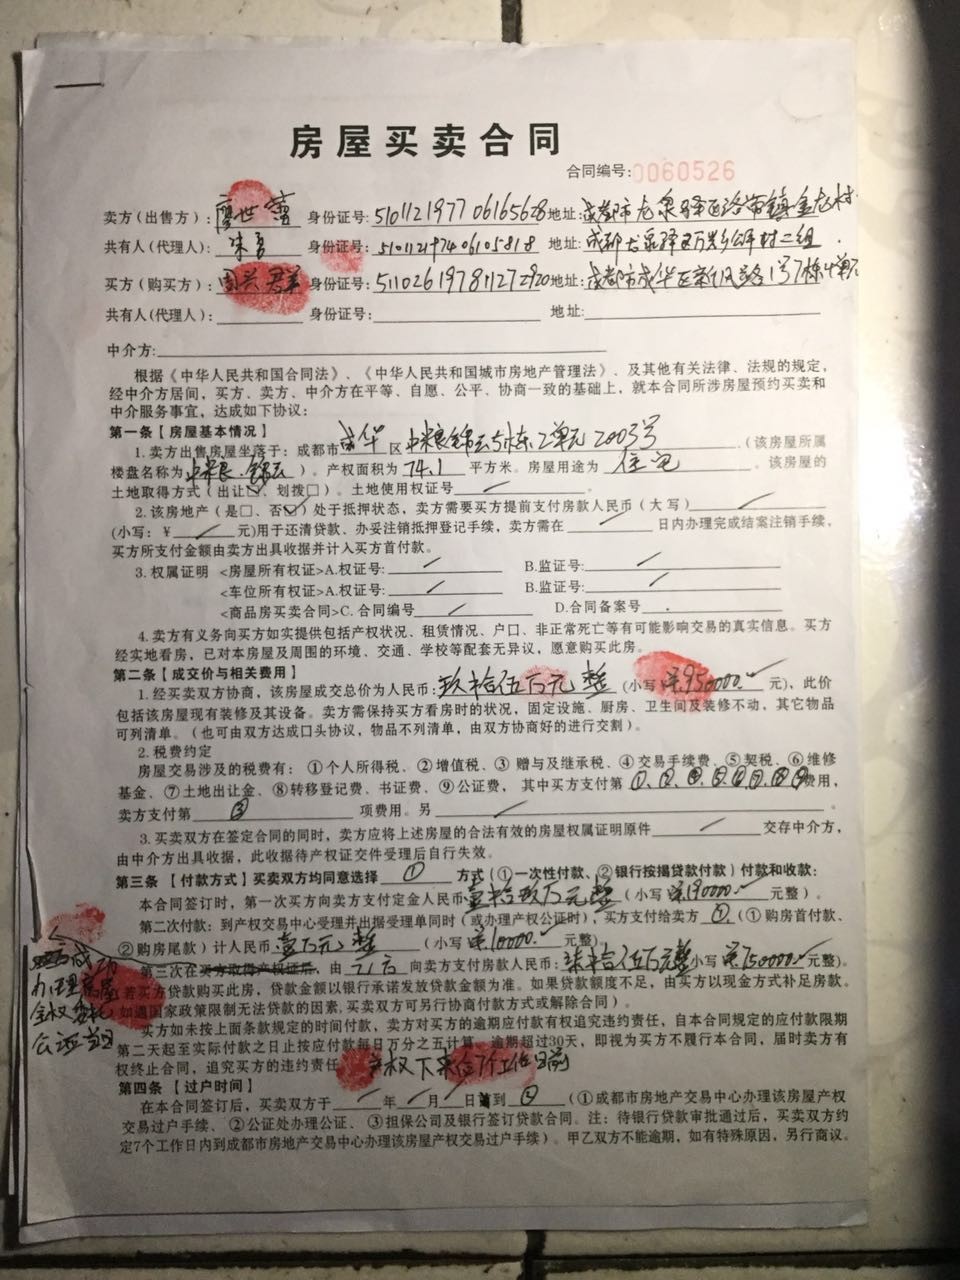 房屋买卖合同
合同编号:0060526
卖方(出售方): 廖世蓉 身份证号: 510112197706165628 地址: 成都市龙泉驿区洛带镇金龙村
共有人(代理人): 朱 身份证号: 510112197406105818 地址: 成都龙泉驿区万兴乡 村二组
买方(购买方): 周兴群 身份证号: 511026197811272920 地址: 成都市成华区新风路1号7栋4单元
共有人(代理人): 身份证号: 地址:
中介方:
根据《中华人民共和国合同法》、《中华人民共和国城市房地产管理法》、及其他有关法律、法规的规定,
经中介方居间,买方、卖方、中介方在平等、自愿、公平、协商一致的基础上,就本合同所涉房屋预约买卖和
中介服务事宜,达成如下协议:
第一条【房屋基本情况】
1.卖方出售房屋坐落于:成都市成华区中粮锦云5栋2单元2003号.(该房屋所属
楼盘名称为中粮.锦云)。产权面积为74.1平方米。房屋用途为住宅。该房屋的
土地取得方式(出让☑、划拨□)。土地使用权证号 / 。
2.该房地产(是□、否☑)处于抵押状态,卖方需要买方提前支付房款人民币(大写) /
(小写:¥ / 元)用于还清贷款、办妥注销抵押登记手续,卖方需在 / 日内办理完成结案注销手续,
买方所支付金额由卖方出具收据并计入买方首付款。
3.权属证明 <房屋所有权证>A.权证号: / B.监证号: /
<车位所有权证>A.权证号: / B.监证号: /
<商品房买卖合同>C.合同编号 / D.合同备案号 .
4.卖方有义务向买方如实提供包括产权状况、租赁情况、户口、非正常死亡等有可能影响交易的真实信息。买方
经实地看房,已对本房屋及周围的环境、交通、学校等配套无异议,愿意购买此房。
第二条【成交价与相关费用】
1.经买卖双方协商,该房屋成交总价为人民币:玖拾伍万元整(小写¥950000.-元),此价
包括该房屋现有装修及其设备。卖方需保持买方看房时的状况,固定设施、厨房、卫生间及装修不动,其它物品
可列清单。(也可由双方达成口头协议,物品不列清单,由双方协商好的进行交割)。
2.税费约定
房屋交易涉及的税费有: ①个人所得税、②增值税、③ 赠与及继承税、④交易手续费、⑤契税、⑥维修
基金、⑦土地出让金、⑧转移登记费、书证费、⑨公证费, 其中买方支付第①、②、 费用,
卖方支付第 ③ 项费用。另 / 。
3.买卖双方在签定合同的同时,卖方应将上述房屋的合法有效的房屋权属证明原件 / 交存中介方,
由中介方出具收据,此收据待产权证交件受理后自行失效。
第三条【付款方式】买卖双方均同意选择 ① 方式(①一次性付款、②银行按揭贷款付款)付款和收款:
本合同签订时,第一次买方向卖方支付定金人民币壹拾玖万元整(小写¥190000.-元整)。
第二次付款:到产权交易中心受理并出据受理单同时(或办理产权公证时),买方支付给卖方 ② (①购房首付款、
②购房尾款)计人民币壹万元整(小写¥10000.-元整)。
第三次在买方取得产权证后,由 买方 向卖方支付房款人民币:柒拾伍万元整小写¥750000.-元整)。
成功
办理房屋
全权委托
公证 当日
若买方贷款购买此房,贷款金额以银行承诺发放贷款金额为准。如果贷款额度不足,由买方以现金方式补足房款。
如遇国家政策限制无法贷款的因素,买卖双方可另行协商付款方式或解除合同)。
买方如未按上面条款规定的时间付款,卖方对买方的逾期应付款有权追究违约责任,自本合同规定的应付款限期
第二天起至实际付款之日止按应付款每日万分之五计算。逾期超过30天,即视为买方不履行本合同,届时卖方有
权终止合同,追究买方的违约责任
产权下来后7个工作日前
第四条【过户时间】
在本合同签订后,买卖双方于 / 年 / 月 / 日前到 ② (①成都市房地产交易中心办理该房屋产权
交易过户手续、②公证处办理公证、③担保公司及银行签订贷款合同。注:待银行贷款审批通过后,买卖双方约
定7个工作日内到成都市房地产交易中心办理该房屋产权交易过户手续)。甲乙双方不能逾期,如有特殊原因,另行商议。